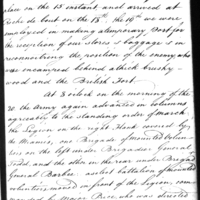 place on the 13 instant and arrived at
Roche de bout on the 18th. the 19th we were
employed in making a temporary Post for
the reception of our stores & baggage & in
reconnoitring the position of the enemy who
was encamped behind a thick bushy
wood and the British Fort
At 8 oclock on the morning of the
20 the Army again advanced in columns
agreeable to the standing order of march
the Legion on the right Flank covered by
the Maumee, one Brigade of mounted volun-
teers on the left under Brigadier General
Todd, and the other in the rear under Brigadier
General Barbee. a select battalion of mounted
volunteers moved in front of the Legion, com-
manded by Major Price who was directed